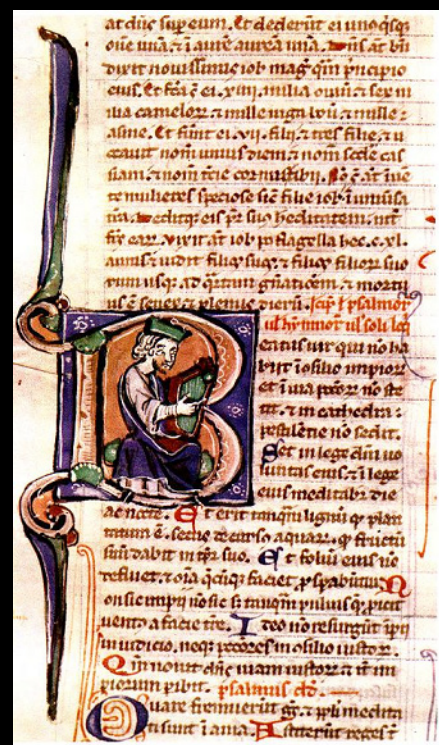 at dñs sup eum. Et dederūt ei unoqsq
oue unā. ⁊ ī aurē aureā unā. dns āt bn̄
dixit novissimis iob mag qm̄ pncipio
eius. Et fcā ē ei. xiiij. milia ouiū ⁊ sex m
ilia camelorꝝ ⁊ mille iuga boū ⁊ mille
asine. Et fūnt ei. vii. filij ⁊ tres filie. ⁊ u
ocauit nom̄ unius diem. ⁊ nom̄ scde cas
siam. ⁊ nom̄ tcie cornustibij. No ē āt iue
te mulieres speciose sic filie iob ī uniusa
t̄ra. deditq eis pr̄ suo heditatem. int
fr̄e earꝝ. vixit āt iob p flagella hec. c. xl.
annis. ⁊ uidit filios suos. ⁊ filios filiorꝝ suo
rum usq ad qrtam gn̄ationem. ⁊ mortu
us ē senex ⁊ plenus dierū.
Beatus uir qui no ha
biit ī osilio impiorꝝ
et ī uia pccorꝝ no ste
tit. ⁊ in cathedra
pestilētie no sedit.
Set in lege dñi uo
luntas eius. ⁊ ī lege
eius meditabr̄ die
ac nocte. Et erit tanqm̄ lignū qꝫ plan
tatum ē. secus decursꝰ aquarꝝ. qꝫ fructū
suū dabit in tp̄r suo. Et foliū eius no
defluet. ⁊ oīa qcūqꝫ faciet pspabūtur. N
on sic impij no sic. s; tanqm̄ puluis qꝫ picit
uento a facie tr̄e. Ideo no resurgūt īpij
in iudicio. neqꝫ pccores in osilio iustorꝝ.
Qm̄ nouit dñs uiam iustorꝝ. ⁊ it̄ im
piorum pibit. psalmus dd.
Quare fremuerūt gg. ⁊ ppli medita
ti sunt ī ania. Astiterūt reges t̄